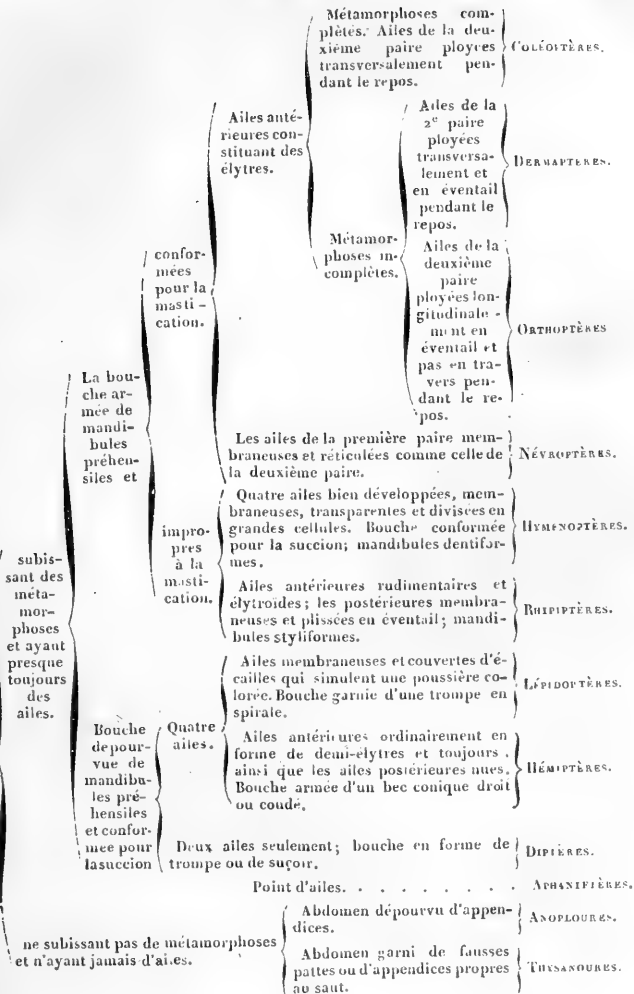 subis-
sant des
méta-
mor-
phoses
et ayant
presque
toujours
des
ailes.
La bou-
che ar-
mée de
mandi-
bules
préhen-
siles et
confor-
mées
pour la
masti-
cation.
Ailes anté-
rieures con-
stituant des
élytres.
Métamorphoses com-
plètes. Ailes de la deu-
xième paire ployées
transversalement pen-
dant le repos.
COLÉOPTÈRES.
Métamor-
phoses in-
complètes.
Ailes de la
2e paire
ployées
transversa-
lement et
en éventail
pendant le
repos.
DERMAPTÈRES.
Ailes de la
deuxième
paire
ployées lon-
gitudinale-
ment en
éventail et
pas en tra-
vers pen-
dant le re-
pos.
ORTHOPTÈRES
Les ailes de la première paire mem-
braneuses et réticulées comme celle de
la deuxième paire.
NÉVROPTÈRES.
impro-
pres
à la
masti-
cation.
Quatre ailes bien développées, mem-
braneuses, transparentes et divisées en
grandes cellules. Bouche conformée
pour la succion; mandibules dentifor-
mes.
HYMÉNOPTÈRES.
Ailes antérieures rudimentaires et
élytroïdes; les postérieures membra-
neuses et plissées en éventail; mandi-
bules styliformes.
RHIPIPTÈRES.
Bouche
depour-
vue de
mandibu-
les pré-
hensiles
et confor-
mée pour
la succion
Quatre
ailes.
Ailes membraneuses et couvertes d'é-
cailles qui simulent une poussière co-
lorée. Bouche garnie d'une trompe en
spirale.
LÉPIDOPTÈRES.
Ailes antérieures ordinairement en
forme de demi-élytres et toujours,
ainsi que les ailes postérieures nues.
Bouche armée d'un bec conique droit
ou coudé.
HÉMIPTÈRES.
Deux ailes seulement; bouche en forme de
trompe ou de suçoir.
DIPTÈRES.
Point d'ailes. . . . . . . . . APHANIPTÈRES.
ne subissant pas de métamorphoses
et n'ayant jamais d'ailes.
Abdomen dépourvu d'appen-
dices.
ANOPLOURES.
Abdomen garni de fausses
pattes ou d'appendices propres
au saut.
THYSANOURES.